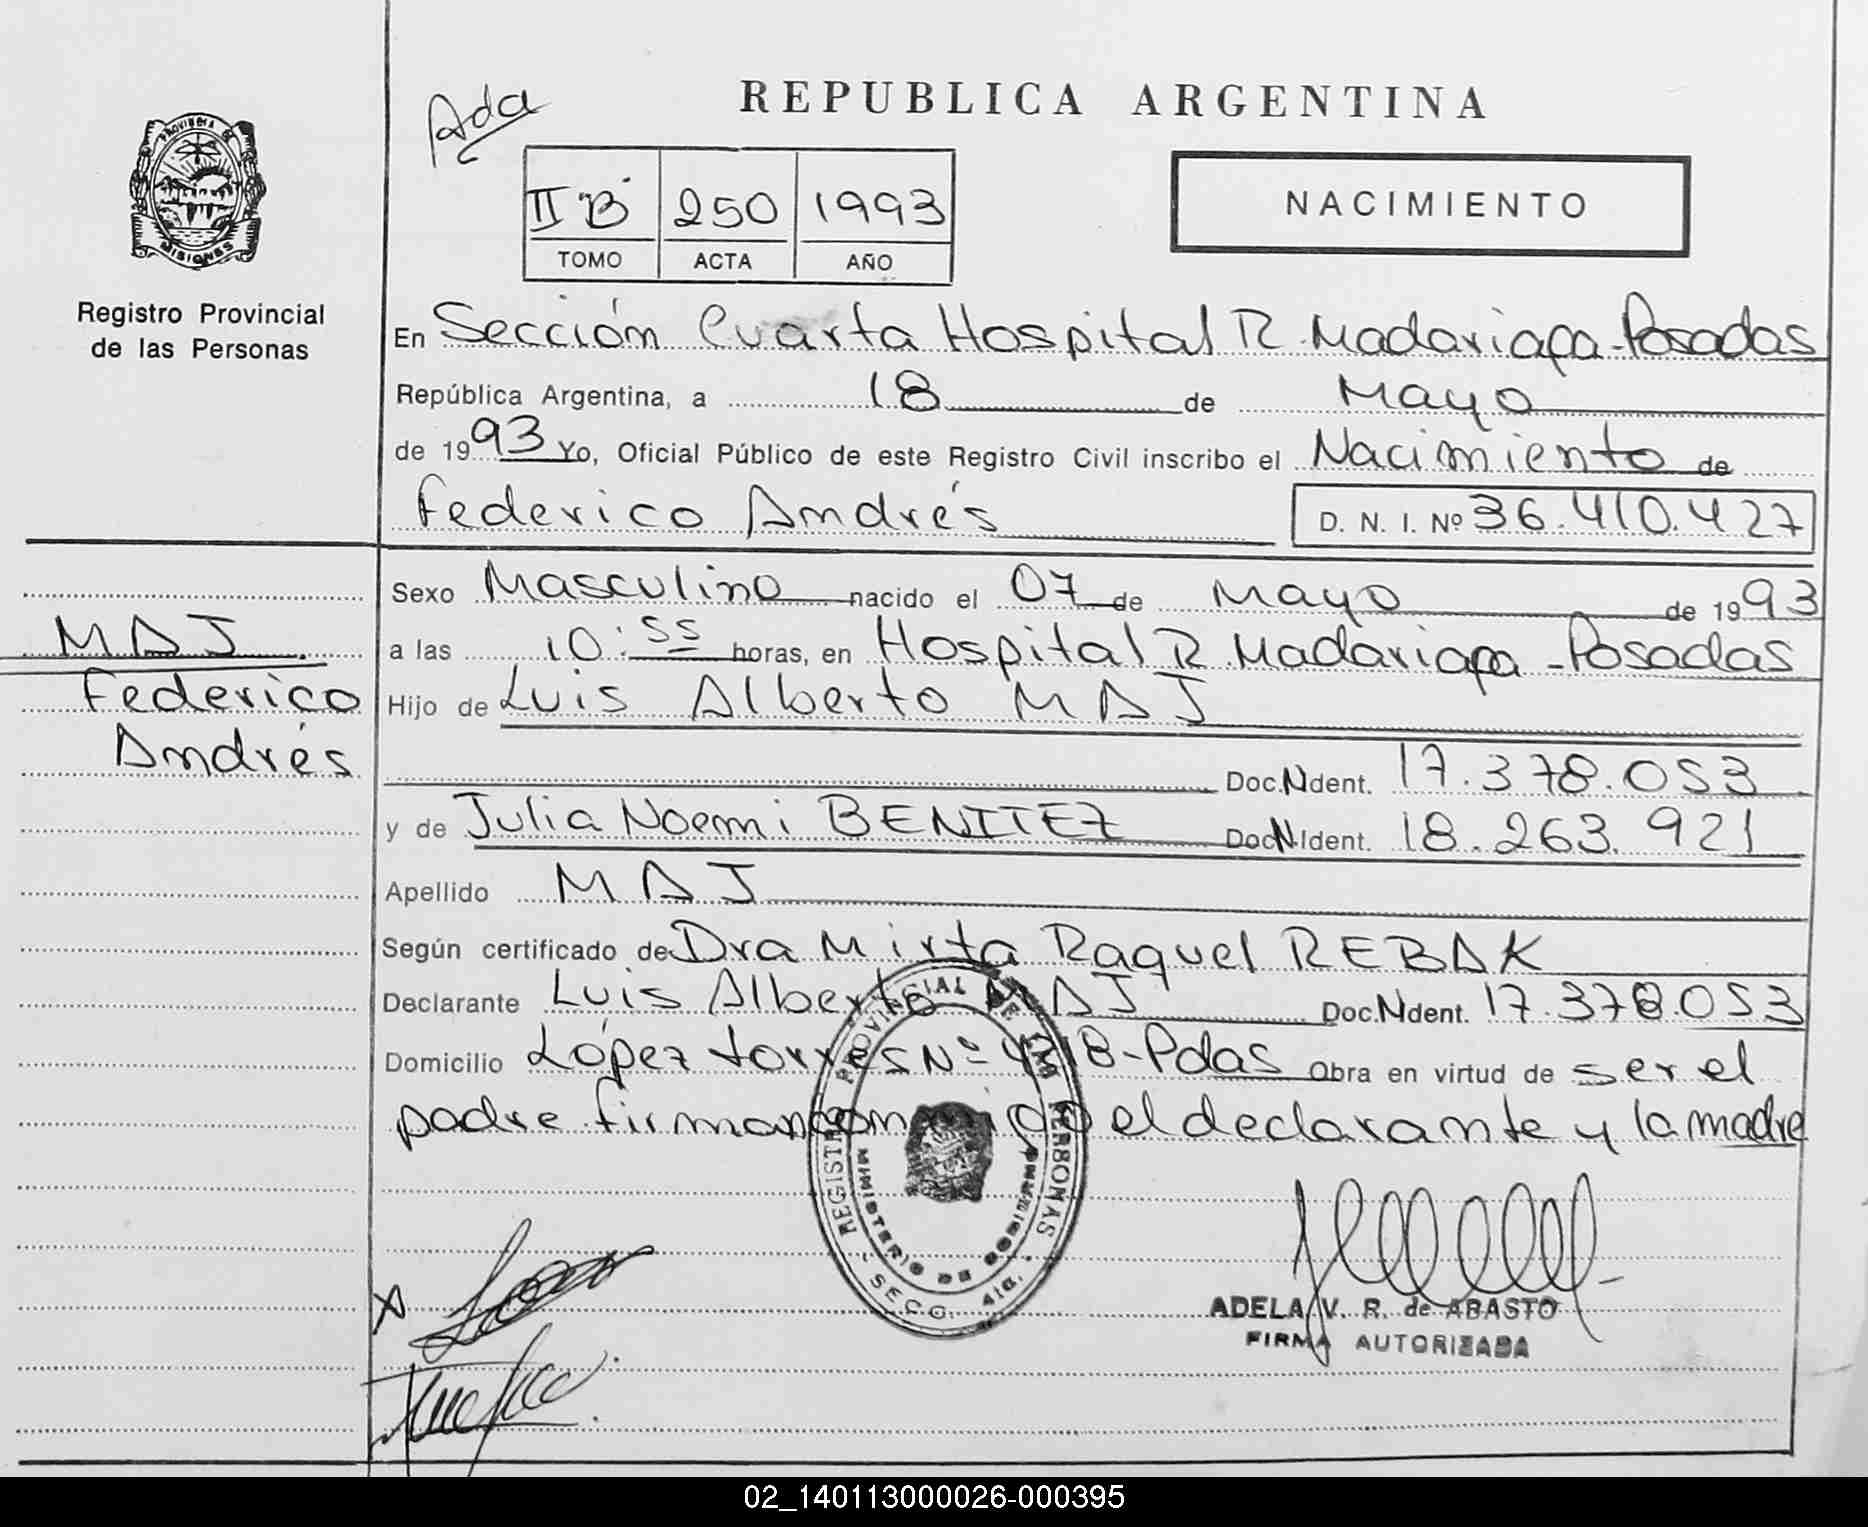 Ada
REPUBLICA ARGENTINA
PROVINCIA DE
MISIONES
Registro Provincial
de las Personas
II "B" 250 1993
TOMO ACTA AÑO
NACIMIENTO
En Sección Cuarta Hospital R. Madariaga - Posadas
República Argentina, a 18 de Mayo
de 1993 Yo, Oficial Público de este Registro Civil inscribo el Nacimiento de
Federico Andrés D. N. I. Nº 36.410.427
MAJ
Federico
Andrés
Sexo Masculino nacido el 07 de Mayo de 1993
a las 10:55 horas, en Hospital R. Madariaga - Posadas
Hijo de Luis Alberto MAJ
Doc.NIdent. 17.378.053
y de Julia Noemi BENITEZ Doc.N.Ident. 18.263.921
Apellido MAJ
Según certificado de Dra Mirta Raquel REBAK
Declarante Luis Alberto MAJ Doc.NIdent. 17.378.053
Domicilio López torres Nº 4718-Pdas Obra en virtud de ser el
padre firman conmigo el declarante y la madre
REGISTRO PROVINCIAL DE LAS PERSONAS
MINISTERIO DE GOBIERNO
- SECC. 4ta. -
ADELA V. R. de ABASTO
FIRMA AUTORIZADA
02_140113000026-000395